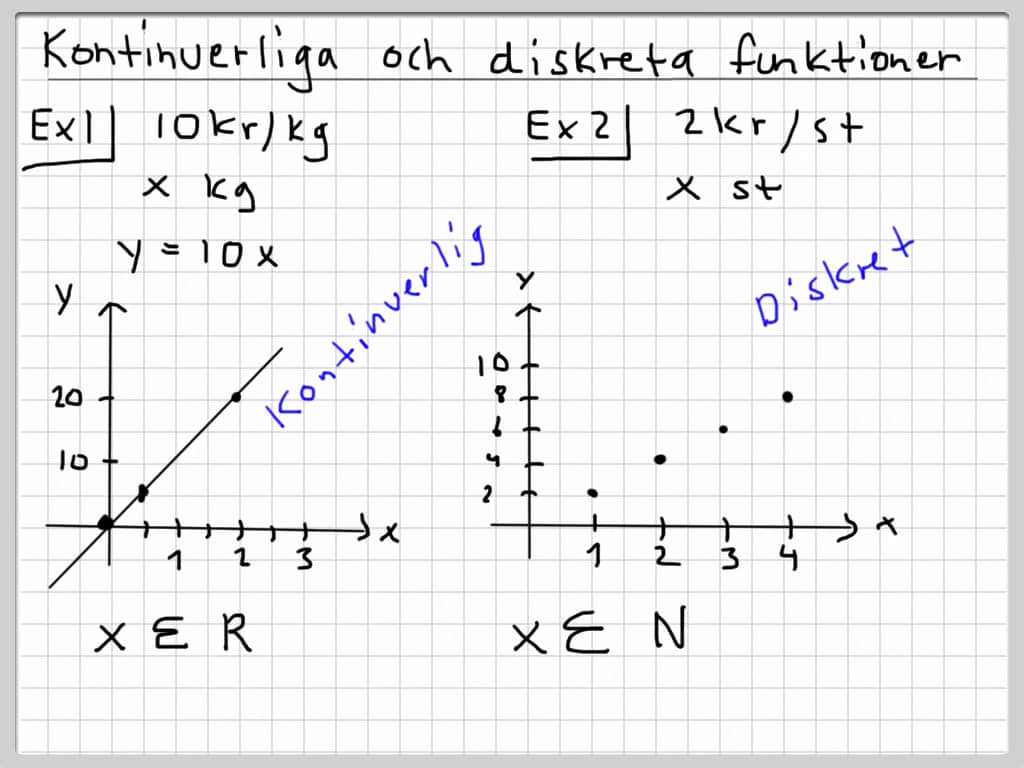 Kontinuerliga och diskreta funktioner
Ex1 10kr/kg
x kg
y = 10x
Kontinuerlig
y
20
10
1 2 3
x
x ∈ R
Ex2 2kr/st
x st
Diskret
y
10
8
6
4
2
1 2 3 4
x
x ∈ N